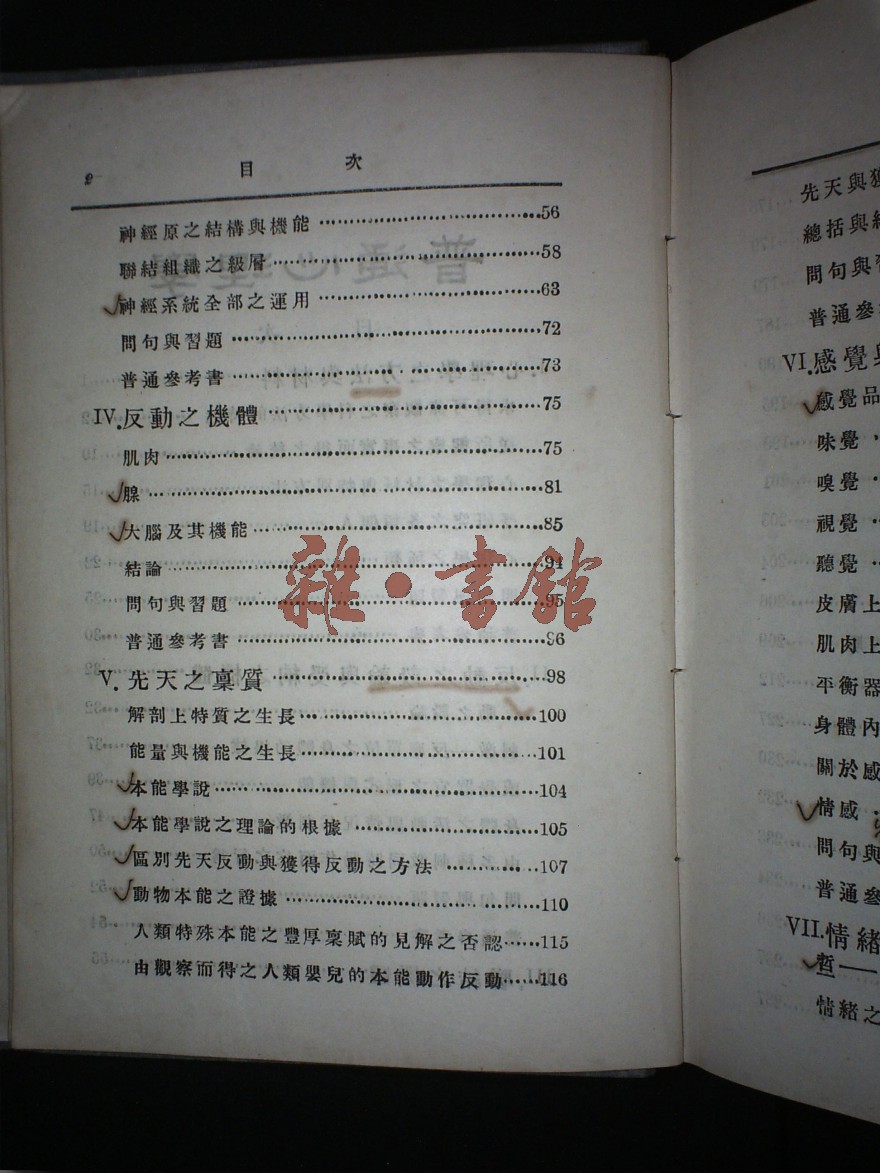 2 目 次
神經原之結構與機能 56
聯結組織之級層 58
神經系統全部之運用 63
問句與習題 72
普通參考書 73
IV.反動之機體 75
肌肉 75
腺 81
大腦及其機能 85
結論 94
問句與習題 95
普通參考書 96
V.先天之稟質 98
解剖上特質之生長 100
能量與機能之生長 101
本能學說 104
本能學說之理論的根據 105
區別先天反動與獲得反動之方法 107
動物本能之證據 110
人類特殊本能之豐厚稟賦的見解之否認 115
由觀察而得之人類嬰兒的本能動作反動 116
雜·書館
先天與
總括與
問句與
普通參
VI.感覺
感覺品
味覺
嗅覺
視覺
聽覺
皮膚上
肌肉上
平衡器
身體內
關於感
情感
問句與
普通參
VII.情緒
情緒之